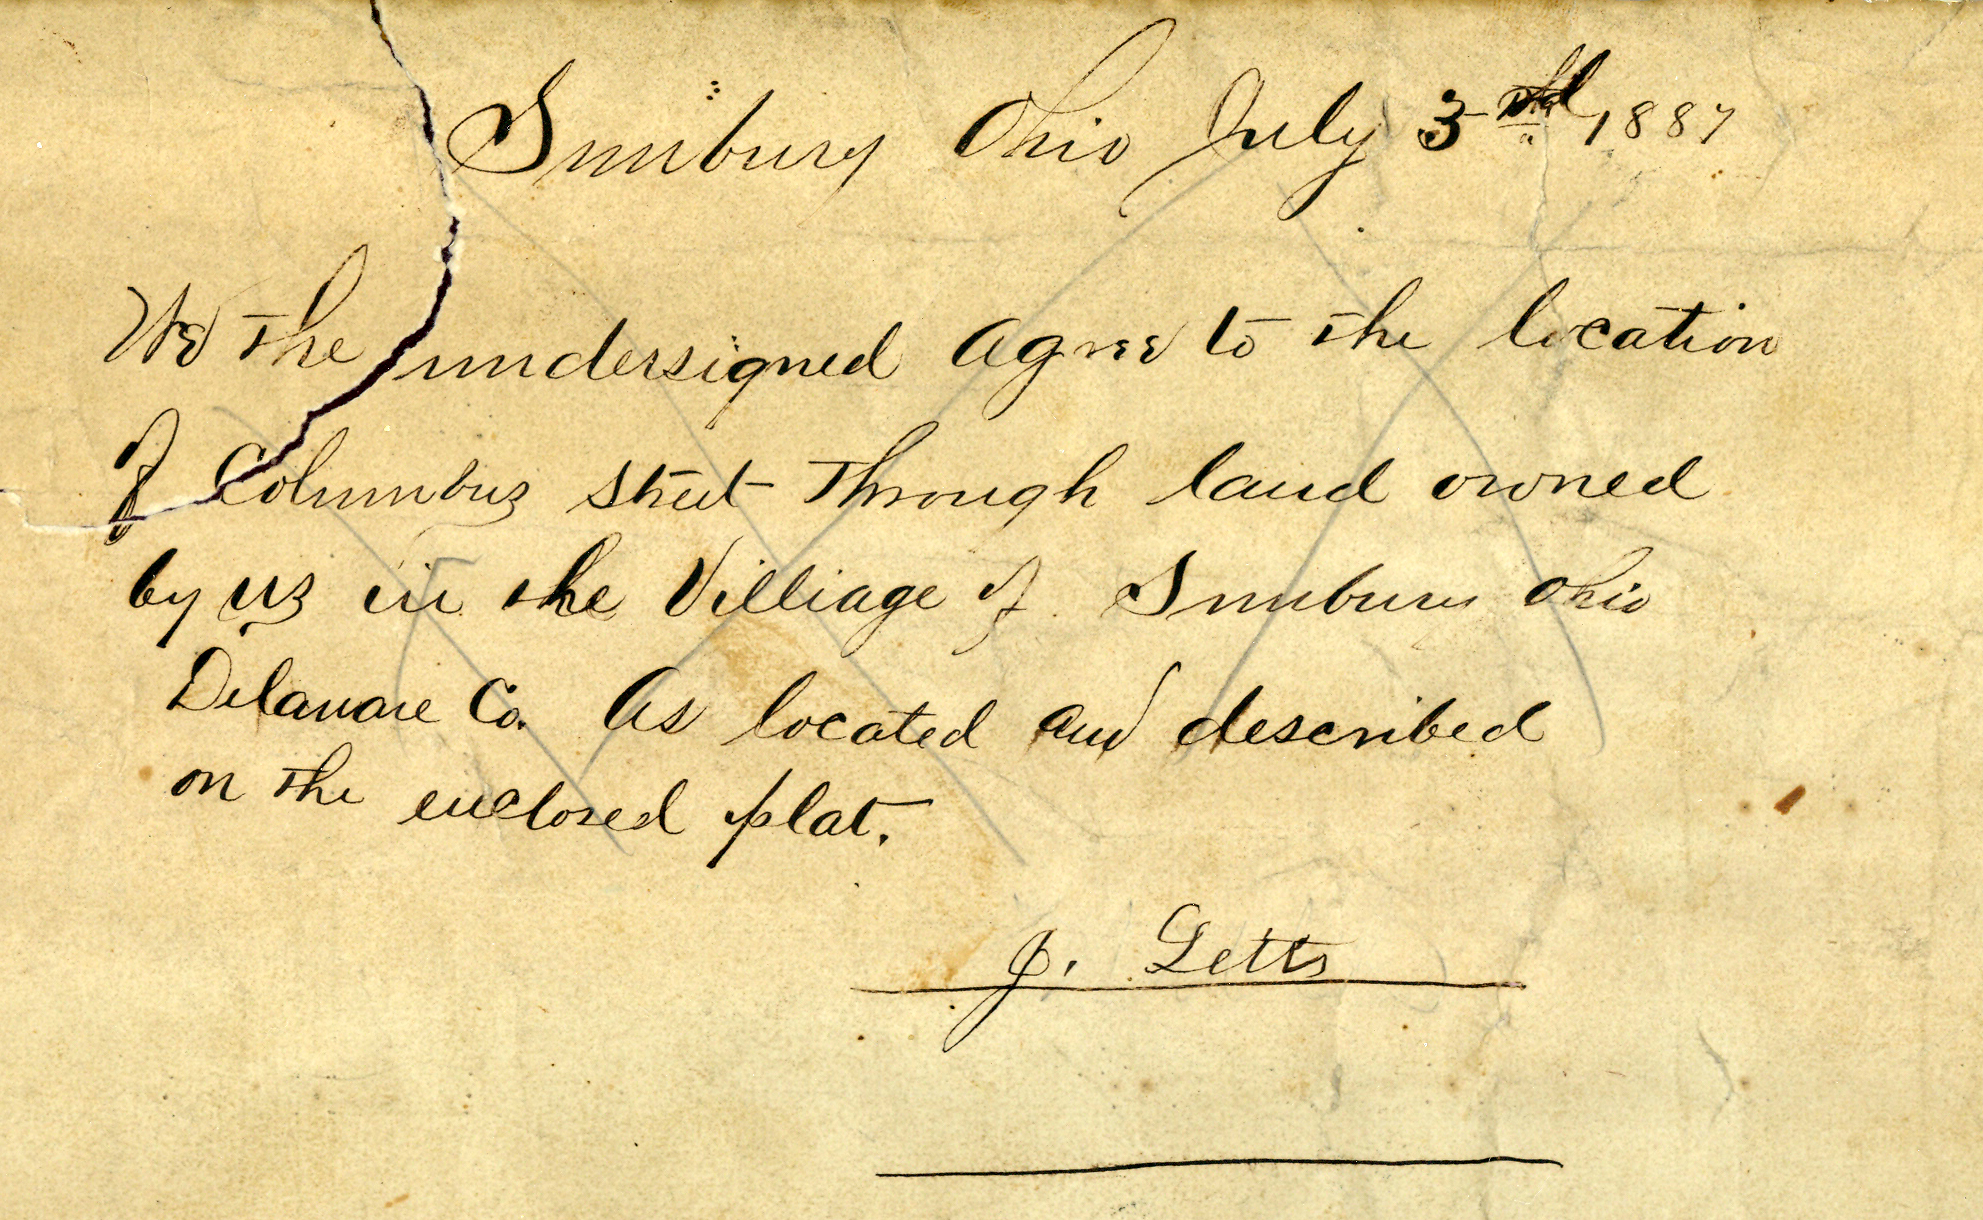 Sunbury Ohio July 3rd, 1887
We the undersigned agree to the location
of Columbus street through land owned
by us in the Villiage of Sunbury Ohio
Delaware Co. As located and described
on the enclosed plat.
J. Letts